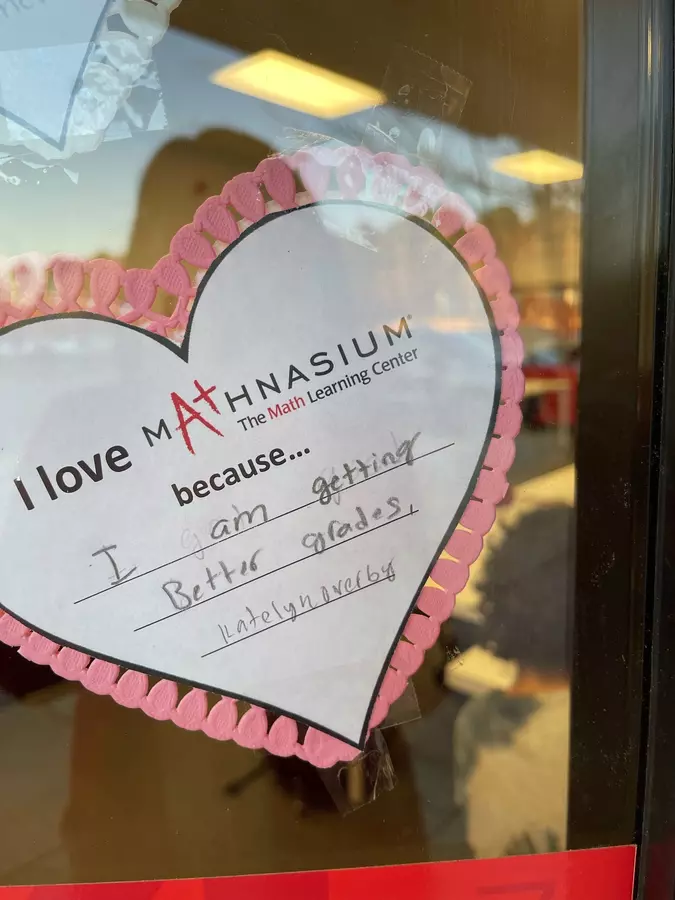 I love MATHNASIUM®
The Math Learning Center
because...
I am getting
Better grades.
katelyn overby